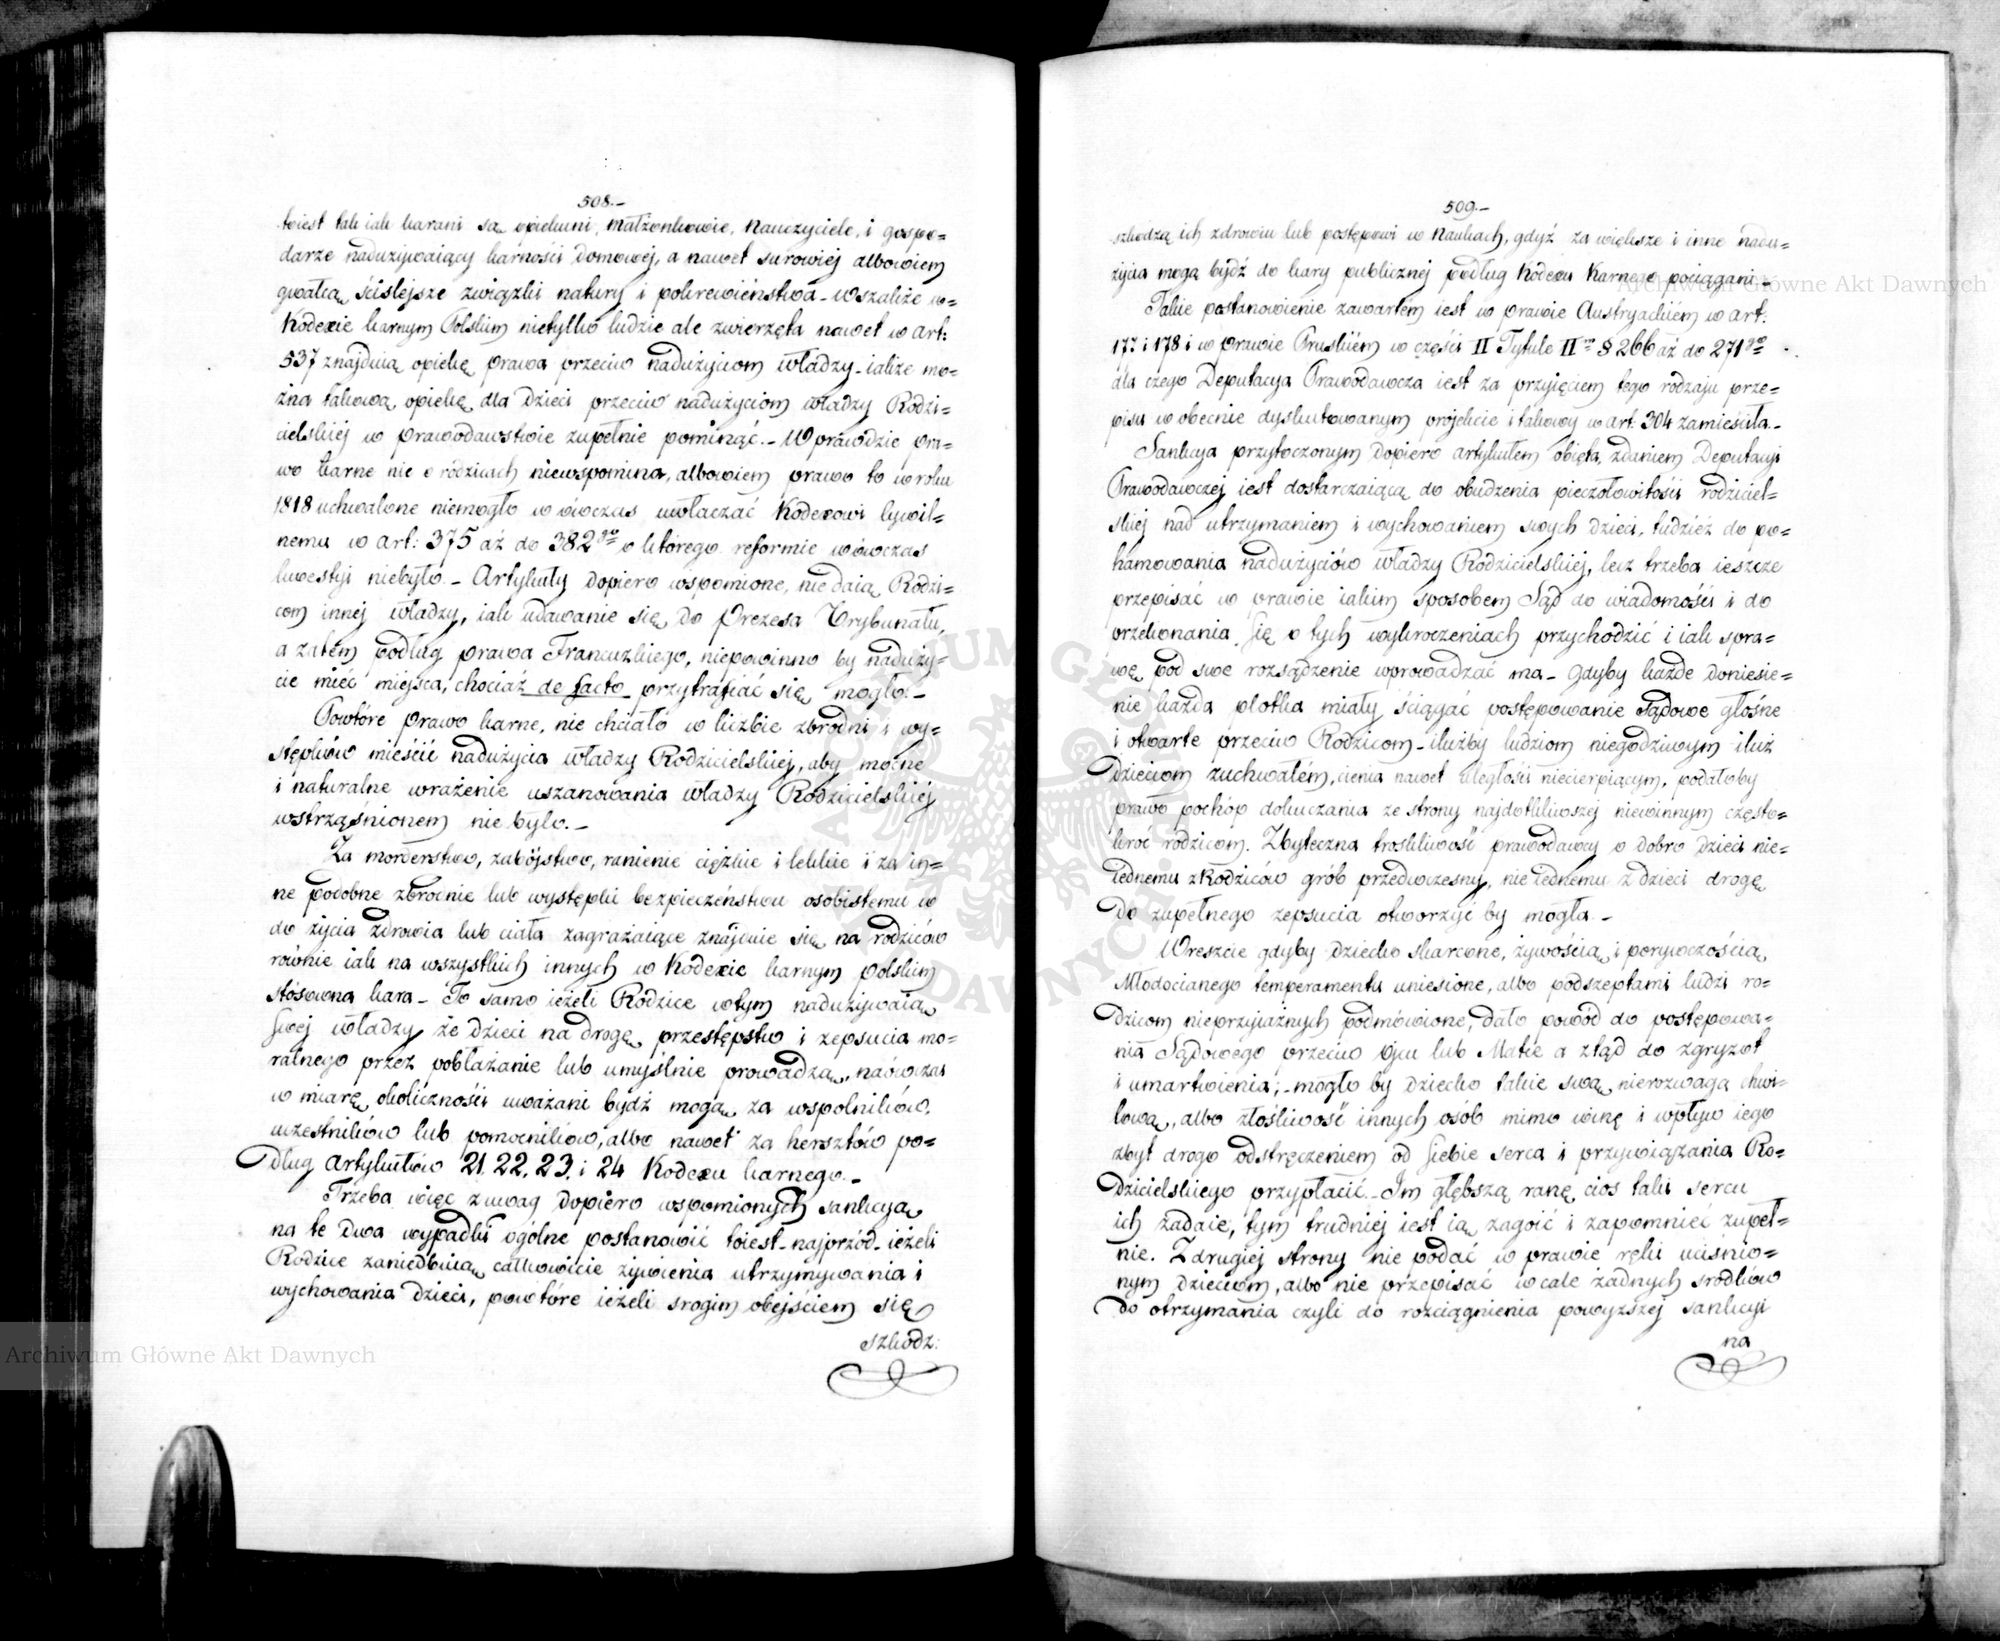 508.-
toiest tak iak karani są opiekuni, małżonkowie, nauczyciele, i gospo=
darze nadużywaiący karności domowej, a nawet surowiej albowiem
gwałcą ściślejsze związki natury i pokrewieństwa - Wszakże w=
Kodexie karnym Polskim nietylko ludzie ale zwierzęta nawet w art:
537 znajduią opiekę prawa przeciw nadużyciom władzy - iakże mo=
żna takową opiekę dla dzieci przeciw nadużyciom władzy Rodzi=
cielskiej w prawodawstwie zupełnie pominąć. - Wprawdzie pra=
wo karne nic o rodzicach niewspomina, albowiem prawo to w roku
1818 uchwalone niemogło wówczas uwłaczać Kodexowi Cywil=
nemu w art: 375 aż do 382go o którego reformie wówczas
kwestyi niebyło. - Artykuły dopiero wspomione, nie daią Rodzi=
com innej władzy, iak udawanie się do Prezesa Trybunału,
a zatem podług prawa Francuzkiego, niepowinno by naduży=
cie mieć miejsca, chociaż de facto przytrafiać się mogło. -
Powtóre prawo karne, nie chciało w liczbie zbrodni i wy=
stępków mieścić nadużycia władzy Rodzicielskiej, aby mocne
i naturalne wrażenie uszanowania władzy Rodzicielskiej
wstrząśnionem nie było. -
Za morderstwo, zabójstwo, ranienie ciężkie i lekkie i za in=
ne podobne zbrodnie lub występki bezpieczeństwu osobistemu w
do życia zdrowia lub ciała zagrażaiące znajdnie się na rodziców
równie iak na wszystkich innych w Kodexie karnym polskim
stósowna kara - To samo ieżeli Rodzice w tym nadużywaią
swej władzy że dzieci na drogę przestępstw i zepsucia mo=
ralnego przez pobłażanie lub umyślnie prowadzą, naówczas
w miarę okoliczności uważani bydź mogą za wspolników,
uczestników lub pomocników, albo nawet za hersztów po=
dług artykułów 21. 22. 23. i 24 Kodexu karnego. -
Trzeba więc z uwag dopiero wspomionych sankcyą
na te dwa wypadki ogólne postanowić toiest - najprzód - ieżeli
Rodzice zaniedbuią całkowicie żywienia utrzymywania i
wychowania dzieci, powtóre ieżeli srogim obejściem się
szkodz:
509.-
szkodzą ich zdrowiu lub postępowi w naukach, gdyż za większe i inne nadu=
życia mogą bydź do kary publicznej podług Kodexu Karnego pociągani
Takie postanowienie zawartem iest w prawie Austryackiem w art:
177 i 178 i w prawie Pruskiem w części II Tytule IIm § 266 aż do 271go
dla czego Deputacya Prawodawcza iest za przyjęciem tego rodzaju prze=
pisu w obecnie dyskutowanym projekcie i takowy w art: 304 zamieściła. -
Sankcya przytoczonym dopiero artykułem obięta, zdaniem Deputacyi
Prawodawczej iest dostarczaiącą do obudzenia pieczołowitości rodziciel=
skiej nad utrzymaniem i wychowaniem swych dzieci, tudzież do po=
hamowania nadużyciów władzy Rodzicielskiej, lecz trzeba ieszcze
przepisać w prawie iakim sposobem Sąd do wiadomości i do
przekonania się o tych wykroczeniach przychodzić i iak spra=
wę pod swe rozsądzenie wprowadzać ma - Gdyby każde doniesie=
nie każda plotka miały ściągać postępowanie Sądowe głośne
i otwarte przeciw Rodzicom - ilużby ludziom niegodziwym iluż
dzieciom zuchwałem, cienia nawet uległości niecierpiącym, podałoby
prawo pochóp dokuczania ze strony najdotkliwszej niewinnym często=
kroć rodzicom. Zbyteczna troskliwość prawodawcy o dobro dzieci nie=
iednemu z Rodziców grób przedwczesny, nie iednemu z dzieci drogę
do zupełnego zepsucia otworzyć by mogła -
Wreszcie gdyby dziecko skarcone, żywością i porywczością
Młodocianego temperamentu uniesione, albo podszeptami ludzi ro=
dzicom nieprzyjaznych podmówione, dało powód do postępowa=
nia Sądowego przeciw Ojcu lub Matce a ztąd do zgryzot
i umartwienia; - mogło by dziecko takie swą nierozwagą chwi=
lową, albo złośliwość innych osób mimo winę i wpływ iego
zbyt drogo odstręczeniem od siebie serca i przywiązania Ro=
dzicielskiego przypłacić - Im głębszą ranę cios taki sercu
ich zadaie, tym trudniej iest ią zagoić i zapomnieć zupeł=
nie. Z drugiej strony nie podać w prawie ręki uciśnio=
nym dzieciom, albo nie przepisać wcale żadnych srodków
do otrzymania czyli do rozciągnienia powyższej sankcyi
na
Archiwum Główne Akt Dawnych
Archiwum Główne Akt Dawnych
ARCHIWUM GŁÓWNE AKT DAWNYCH